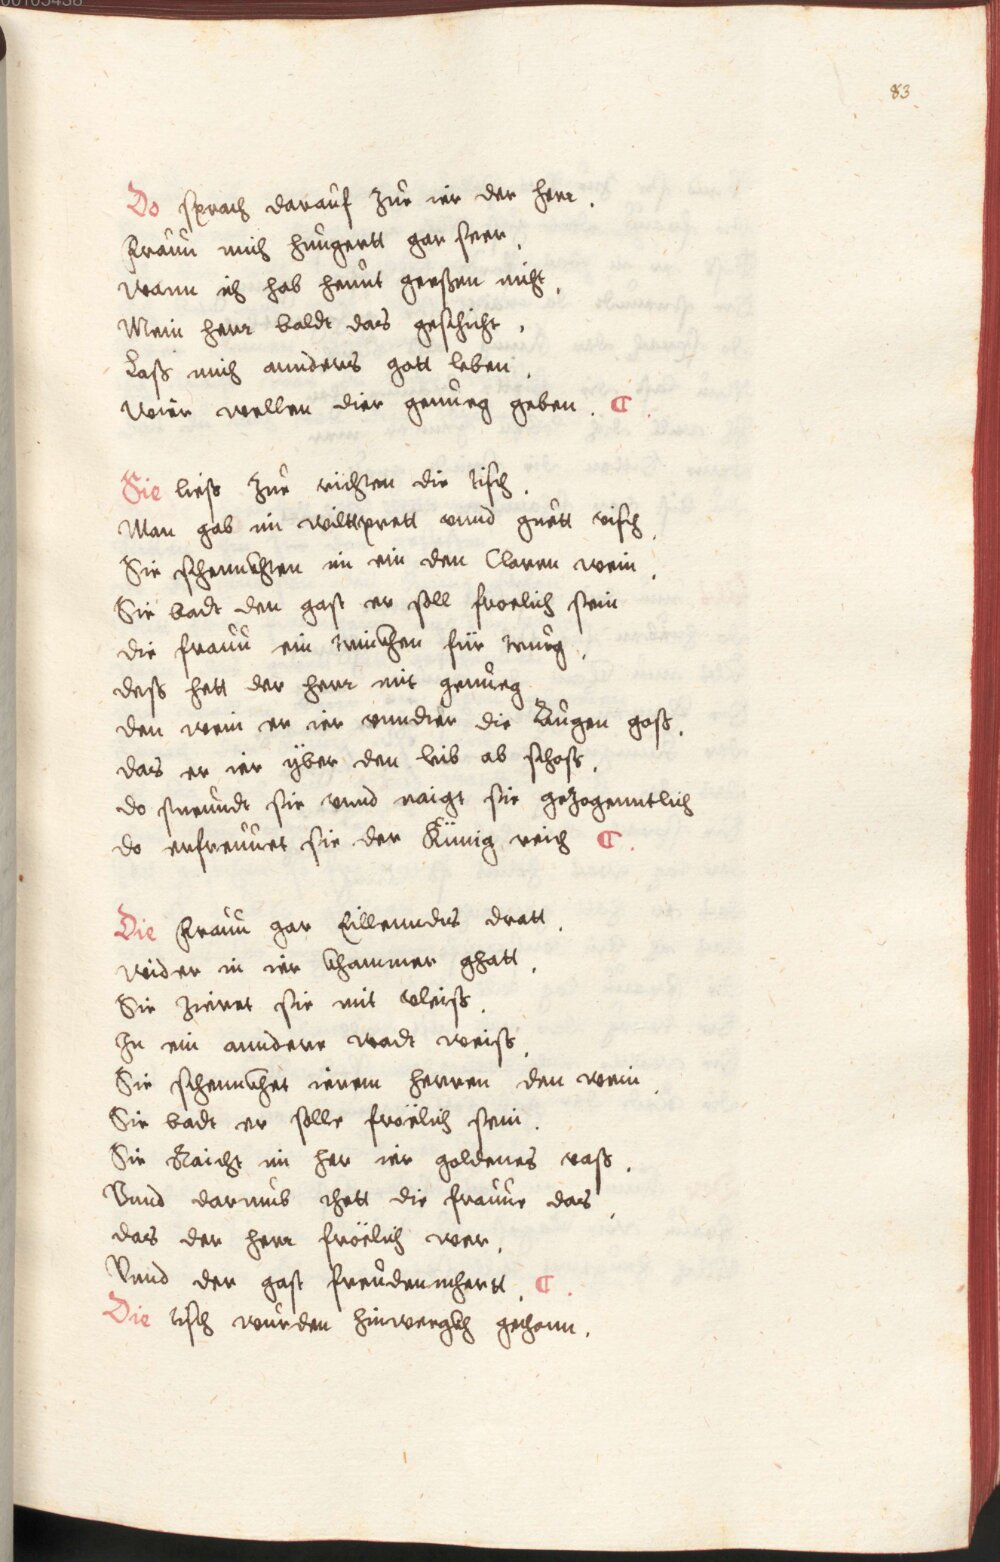 00103438
83
Do sprach darauf zue ier der herr.
Frauu mich hungertt gar seer,
wann ich hab heunt geeßen nicht,
Mein herr baldt das geschicht,
Laß mich annders gott leben,
Wier wellen dier genueg geben.
Sie liess zue richten die tisch,
Man gab im wilttprett vnnd guett visch,
Sie schennckhten im ein den Claren wein,
Sie badt den gast er soll froelich sein
die frauu ein trinckhen für trueg,
dess hett der herr nit genueg
den wein er ier vnndter die Augen goß,
das er ier ÿber den leib ab schoss,
do stuendt sie vnnd naigt sie gezogenntlich
do erfreuuet sie der Künig reich
Die Frauu gar Eillenndes dratt,
wider in ier khammer ghatt,
Sie zieret sie mit vleiss,
In ein anndere wadt weiss,
Sie schennckhet ierem herren den wein,
Sie badt er solle froëlich sein.
Sie Raicht im her ier goldenes vaß,
Vnnd darumb thett die frauue das,
das der herr froëlich wer,
Vnnd der gast freuden mhert,
Die tisch wurden hinwerckh gethonn,